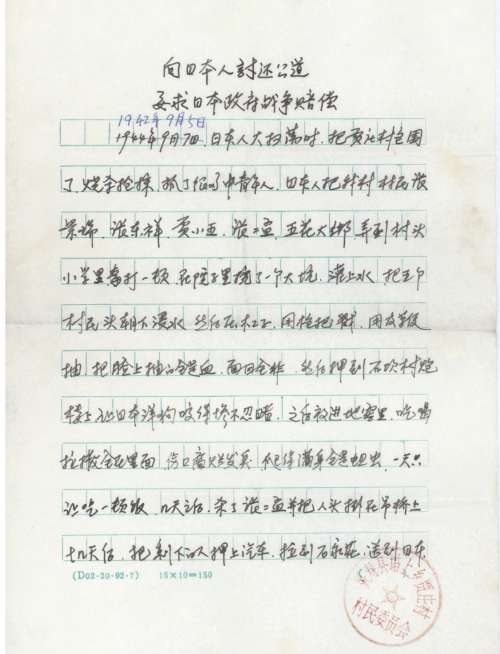 向日本人討还公道
要求日本政府战争赔偿
1942年9月5日
1944年9月7日 日本人大扫荡时,把贾庄村包围
了,烧杀抢掠,抓了 中青年人,日本人把我村村民张
张东祥,贾小五,张二孟,五花大绑,弄到村头
小学里毒打一顿,在院子里挖了一个大坑,灌上水,把
村民头朝下浸水 然后压杠子,用枪把 ,用皮 
抽,把脸上抽的全是血,面目全非,然后押到石坎村炮
楼上让日本洋狗咬得惨不忍睹,之后被进地窖里,吃喝
拉撒全在里面,伤口腐烂发臭,化得满身全是蛆虫,一天只
让吃一顿饭,几天之后,杀了张二孟并把人头掛在吊桥上
十几天后,把剩下的人押上汽车,拉到石家庄,送到日本
(D02·20·92·7) 15×10=150
乡贾庄村
村民委员会